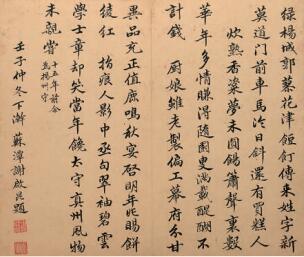 綠楊城郭蓼花津餖飣傳來姓字新
莫道門前車馬冷日斜還有買糕人
炊熟香粱夢未圓餳簫聲裏數
華年多情賺得隨園叟滿醍醐不
計錢 厨娘雖老製偏工幕府分甘
異品充正值鹿鳴秋宴啓明年此賜餅
綾紅 指痕人影中丞句翠袖碧雲
學士章却笑當年饒太守真州風物
未親嘗 十五年前余
為揚州守
壬子仲冬下澣蘇潭謝啟昆題